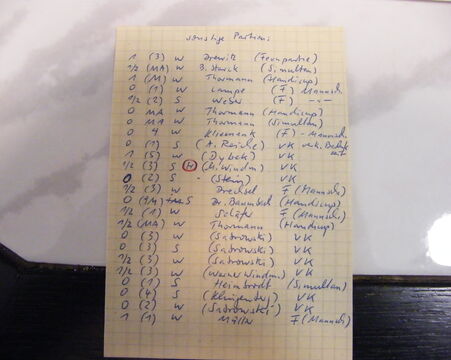 sonstige Partien:
1 (3) W Drewitz (Fernpartie)
1/2 (MA) W B. Starck (Simultan)
1 (M) W Thormann (Handicap)
0 (1) W Lampe (F) Mannsch.
1/2 (2) S Weber (F) -"-
0 MA W Thormann (Handicap)
0 MA W Thormann (Simultan)
0 4 W Kliemank (F) - Mannsch.
0 (1) S (A. Reiche) VK
1 (5) W (Dybek) VK
1/2 (3) S (W) (M. Windm) VK
0 (2) S - (Stein) VK
1/2 (3) W Drechsel F (Mannsch)
0 S Dr. Baumbach (Handicap)
1/2 (1) W Schäfer F (Mannsch.)
1/2 (MA) W Thormann (Handicap)
0 (3) W (Sabrowski) VK
0 (3) S (Sabrowski) VK
1/2 (3) W (Sabrowski) VK
1/2 (3) W (Werner Windm.) VK
0 (1) S Heimbrodt (Simultan)
0 (4) S VK
0 (2) W (Sabrowski) VK
1 (1) W Müller F (Mannsch)